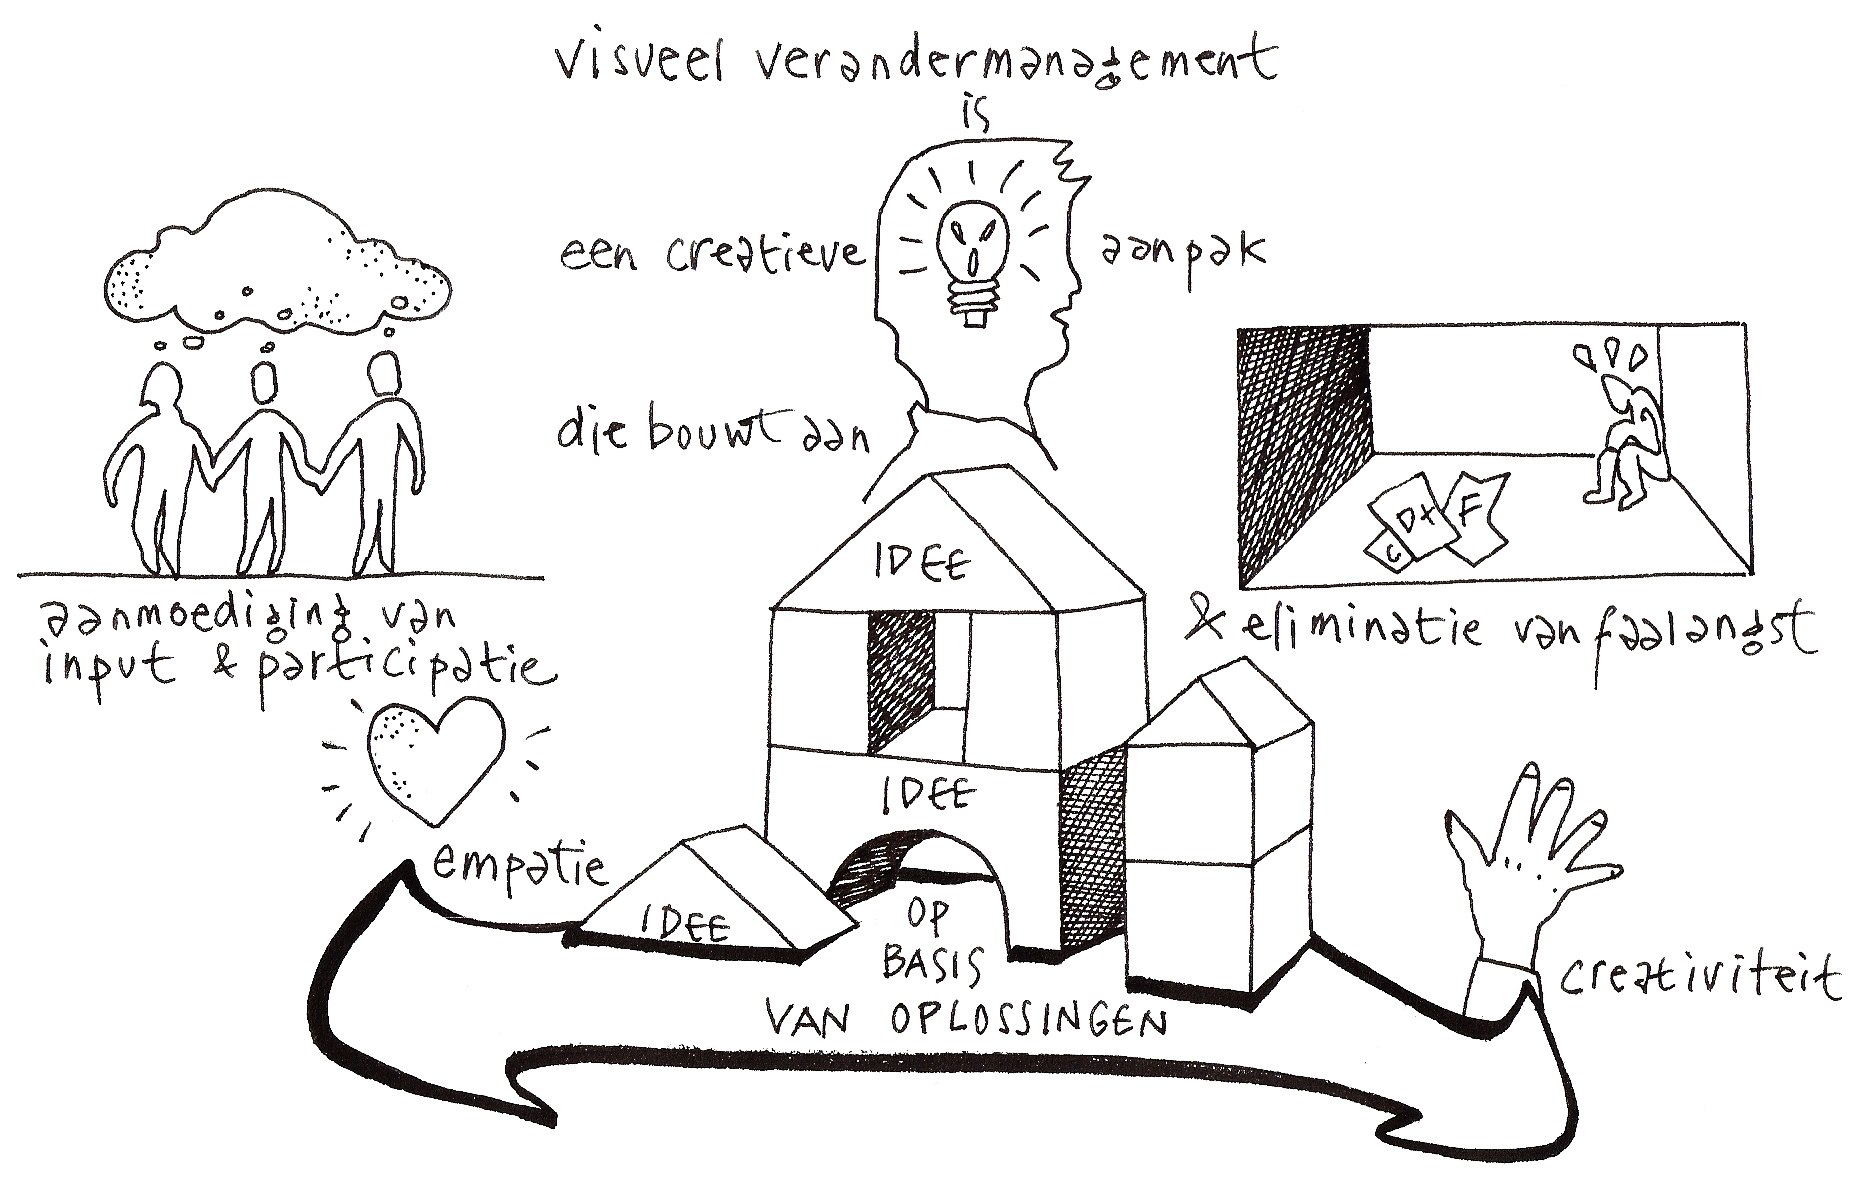 visueel verandermanagement
is
een creatieve aanpak
die bouwt aan
IDEE
IDEE
IDEE
OP
BASIS
VAN OPLOSSINGEN
aanmoediging van
input & participatie
empatie
C D+ F
& eliminatie van faalangst
creativiteit